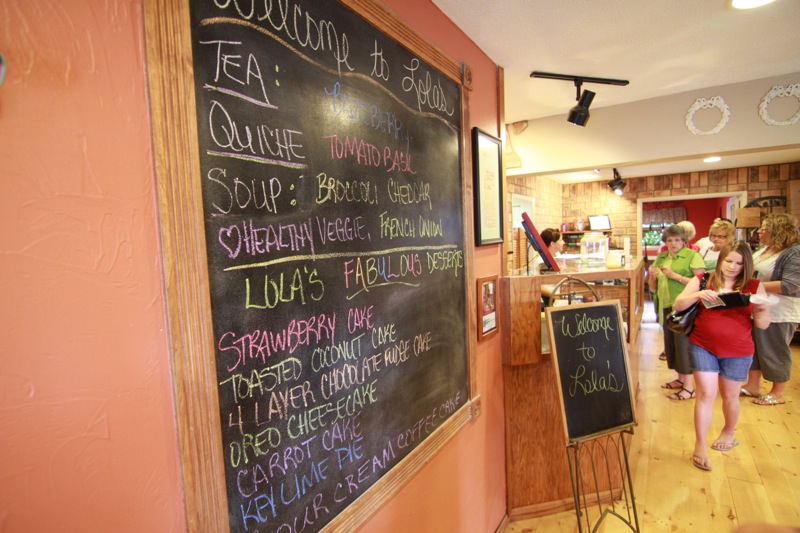 Welcome to Lola's
TEA: BLUEBERRY
QUICHE TOMATO BASIL
SOUP: BROCCOLI CHEDDAR
♡HEALTHY VEGGIE, FRENCH ONION
LULA'S FABULOUS DESSERTS
STRAWBERRY CAKE
TOASTED COCONUT CAKE
4 LAYER CHOCOLATE FUDGE CAKE
OREO CHEESECAKE
CARROT CAKE
KEY LIME PIE
SOUR CREAM COFFEE CAKE
Welcome
to
Lola's